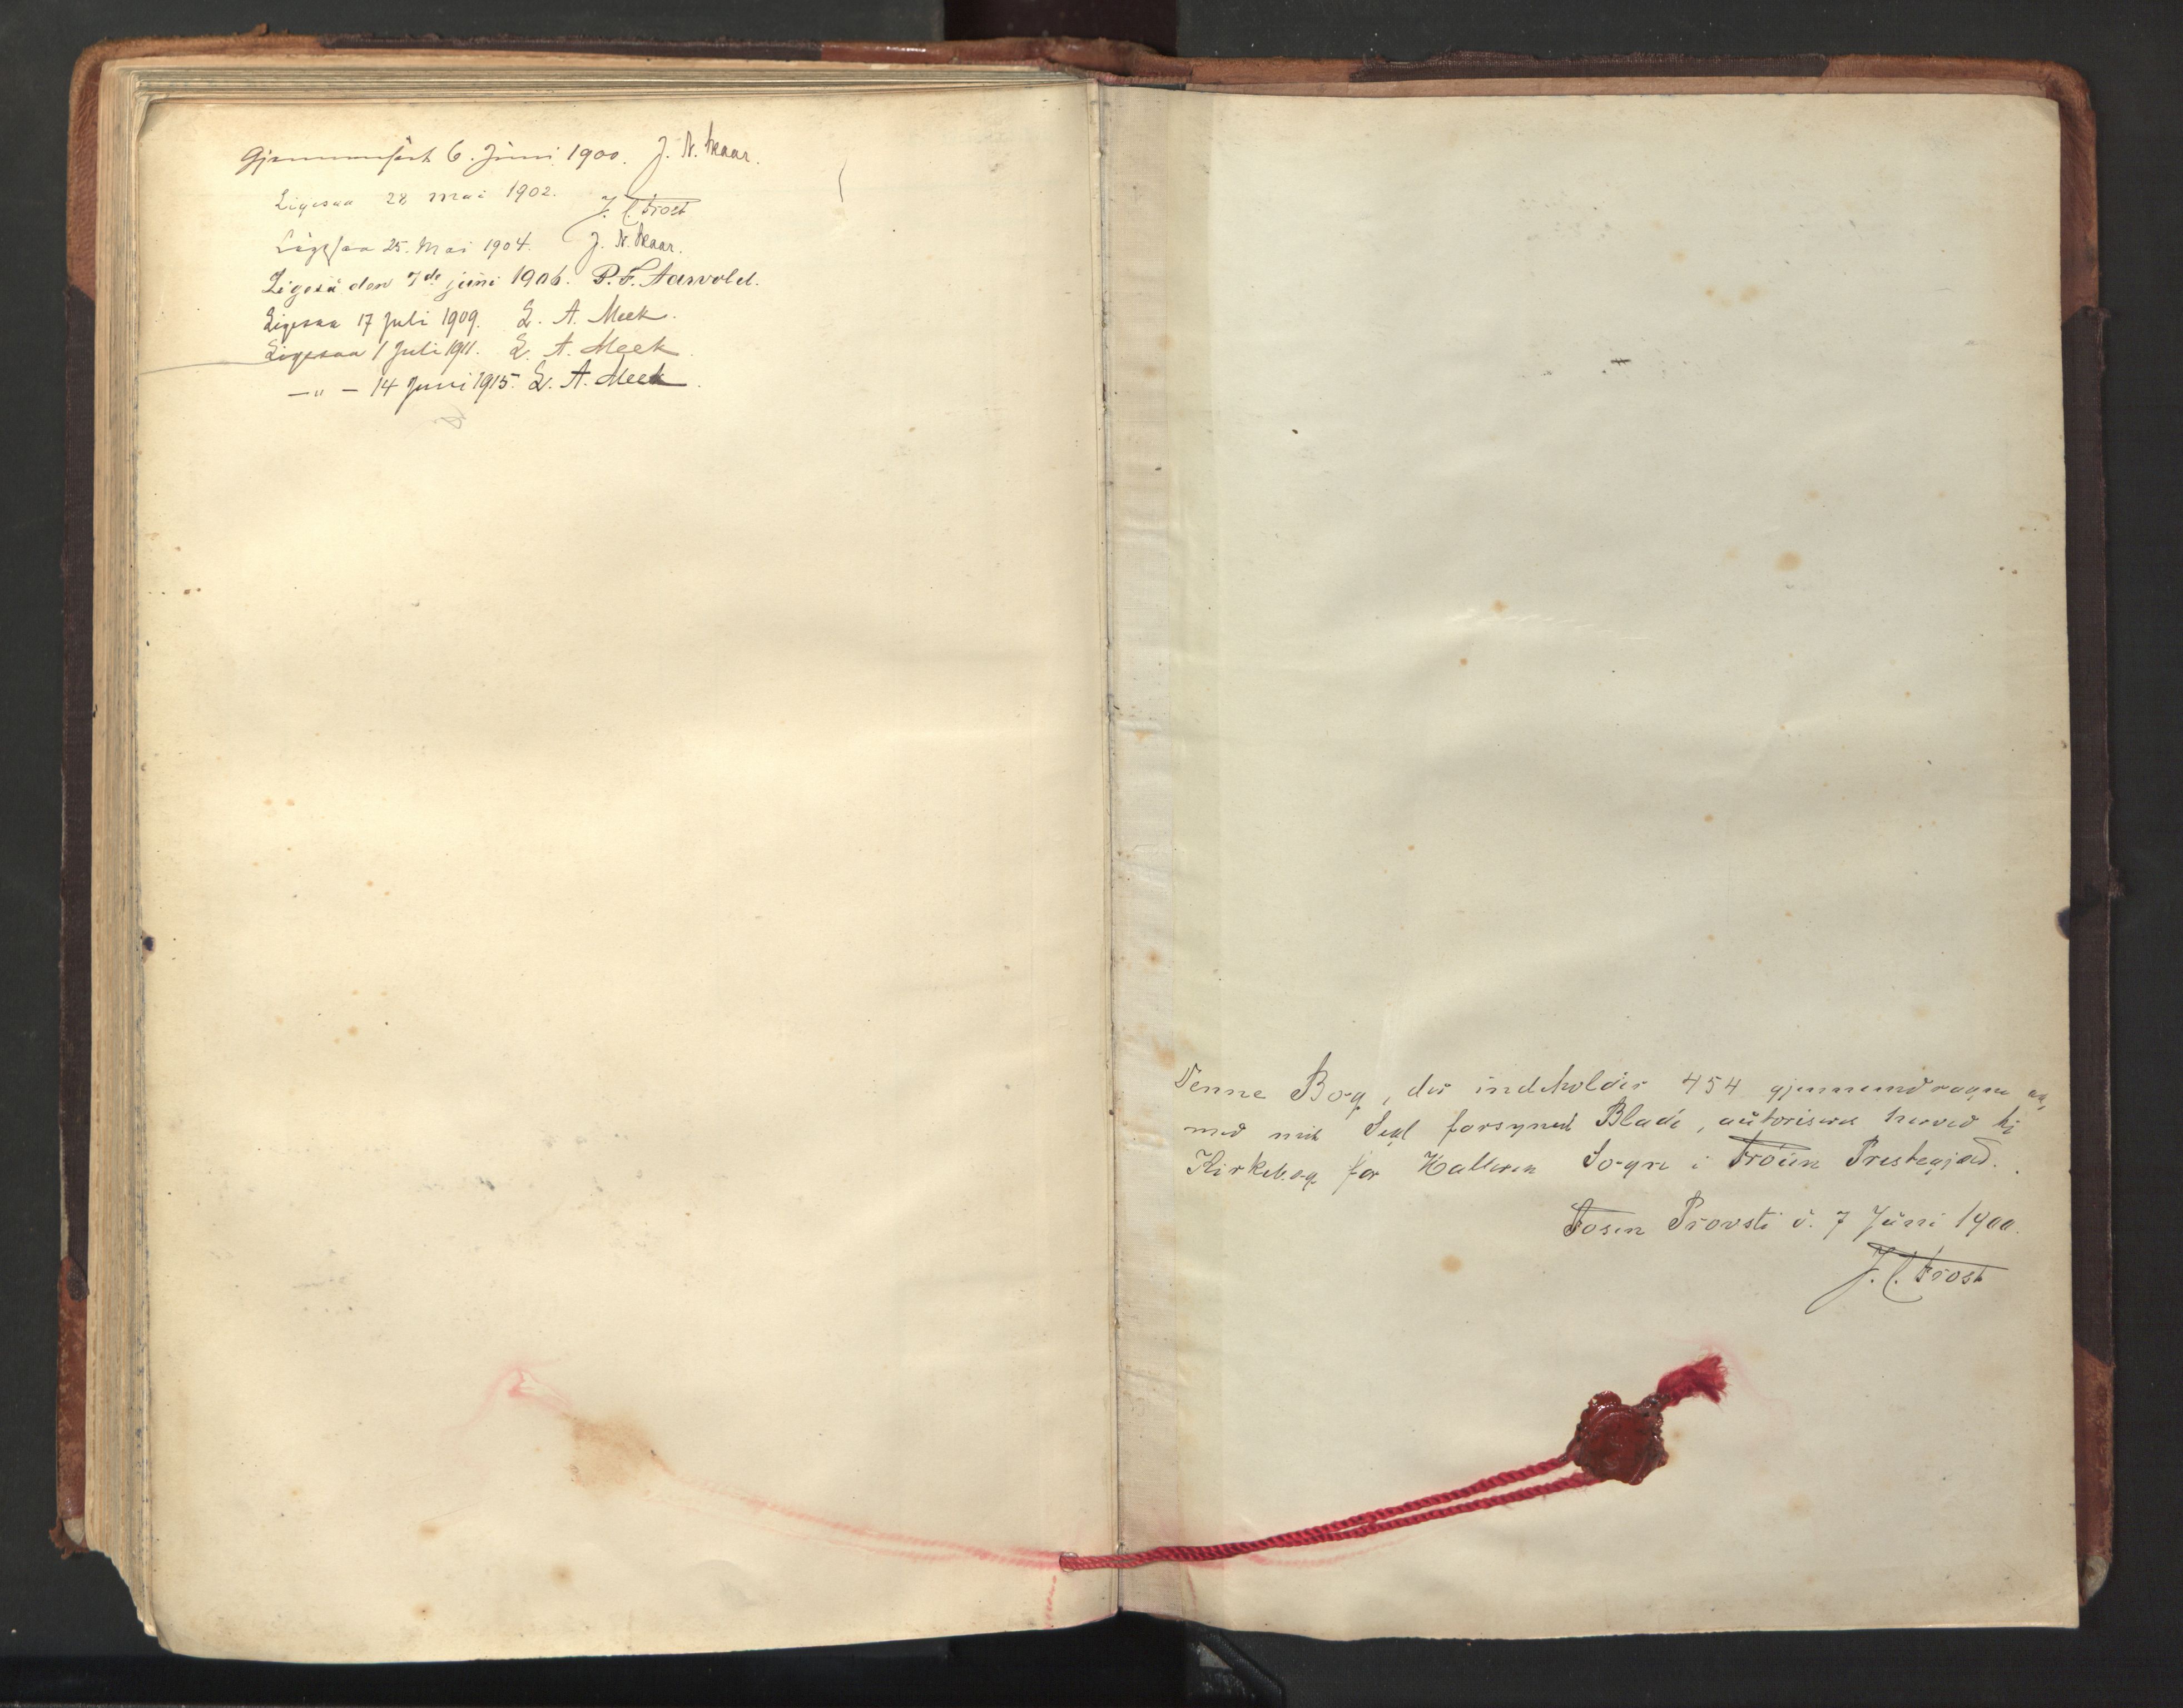 Gjennemset 6. Juni 1900. J. N. Skaar.
Ligesaa 28 mai 1902. J. C. Frost
Ligesaa 25. Mai 1904. J. N. Skaar.
Ligeså den 7de juni 1906. P. F. Aasvold.
Ligesaa 17 Juli 1909. L. A. Meek.
Ligesaa 1 Juli 1911. L. A. Meek
— " — 14 Juni 1915. L. A. Meek.
Denne Bog, der indeholder 454 gjennemdragne og
med mit Segl forsynede Blade, autoriseres herved til
Kirkebog for Halleren Sogn i Frøien Prestegjæld.
Fosen Provsti d. 7 Juni 1900.
J. C. Frost